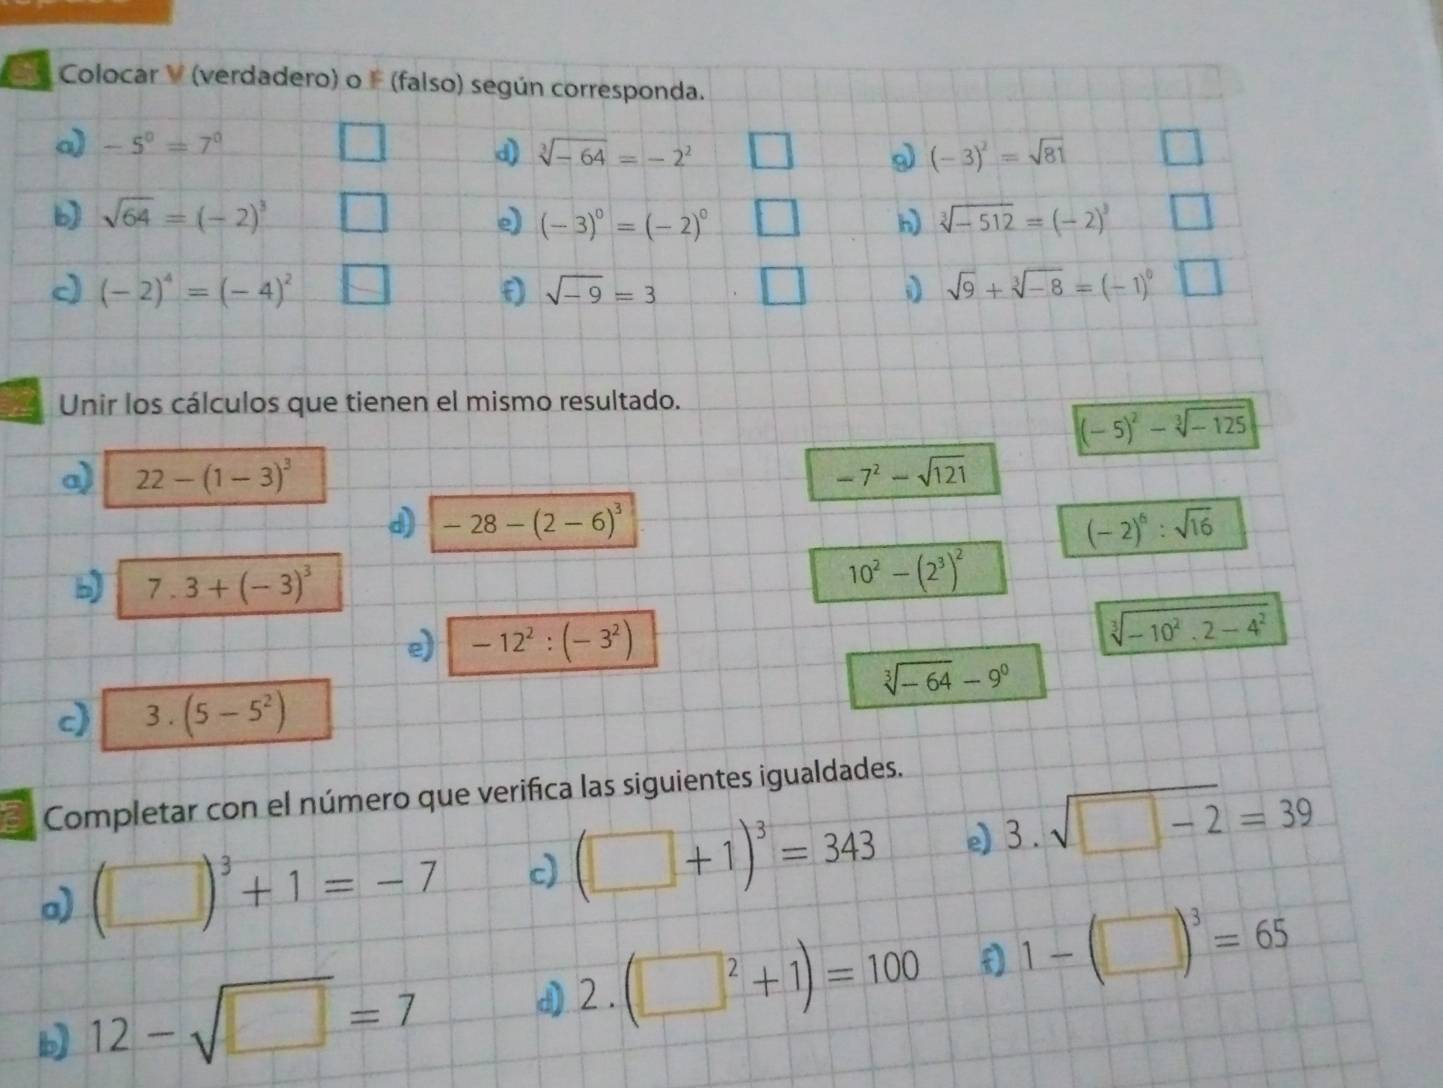 Colocar V (verdadero) o F (falso) según corresponda.
a) -5⁰ = 7⁰ □ d) ∛-64 = -2² □ g) (-3)² = √81 □
b) √64 = (-2)³ □ e) (-3)⁰ = (-2)⁰ □ h) ∛-512 = (-2)³ □
c) (-2)⁴ = (-4)² □ f) √-9 = 3 □ i) √9 + ∛-8 = (-1)⁰ □
Unir los cálculos que tienen el mismo resultado.
(-5)² - ∛-125
a) 22 - (1 - 3)³
-7² - √121
d) -28 - (2 - 6)³
(-2)⁶ : √16
b) 7 . 3 + (-3)³
10² - (2³)²
e) -12² : (-3²)
∛(-10² . 2 - 4²)
c) 3 . (5 - 5²)
∛-64 - 9⁰
Completar con el número que verifica las siguientes igualdades.
a) (□)³ + 1 = -7 c) (□ + 1)³ = 343 e) 3 . √(□ - 2) = 39
b) 12 - √□ = 7 d) 2 . (□² + 1) = 100 f) 1 - (□)³ = 65